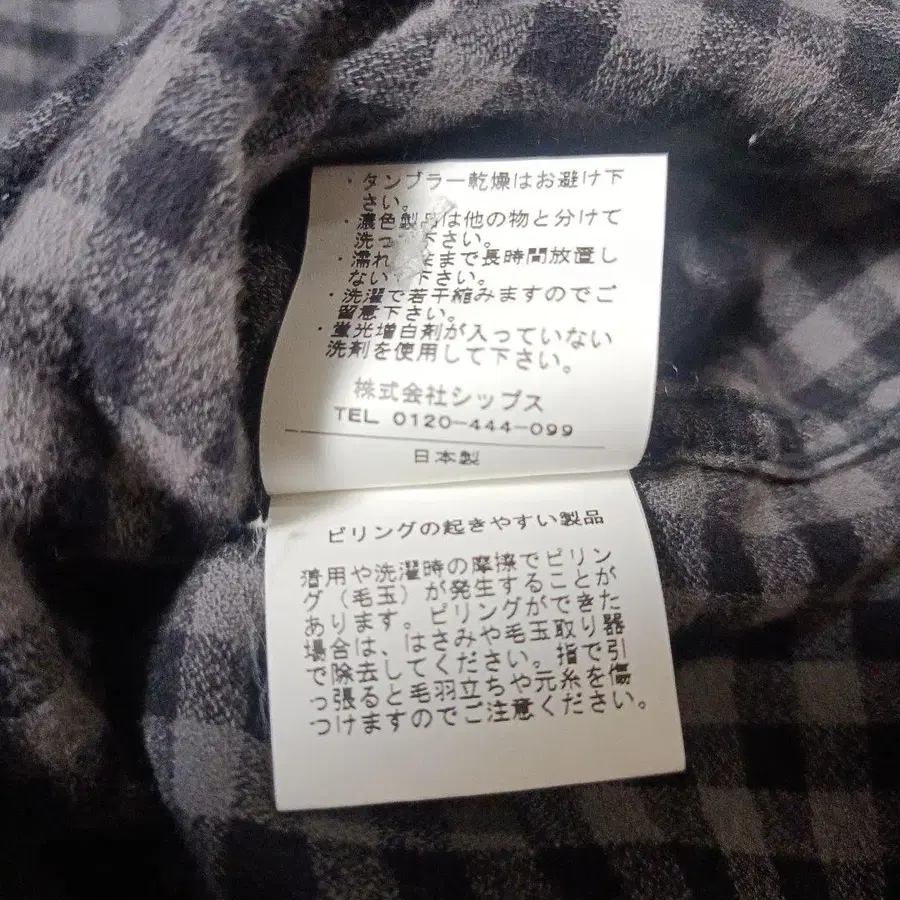 ・タンブラー乾燥はお避け下
さい。
・濃色製品は他の物と分けて
洗っ 下さい。
・濡れ まで長時間放置し
ない 下さい。
・洗濯で若干縮みますのでご
留意下さい。
・蛍光増白剤が入っていない
洗剤を使用して下さい。
株式会社シップス
TEL 0120-444-099
日本製
ピリングの起きやすい製品
着用や洗濯時の摩擦でピリン
グ（毛玉）が発生することが
あります。ピリングができた
場合は、はさみや毛玉取り器
で除去してください。指で引
っ張ると毛羽立ちや元糸を傷
つけますのでご注意ください。